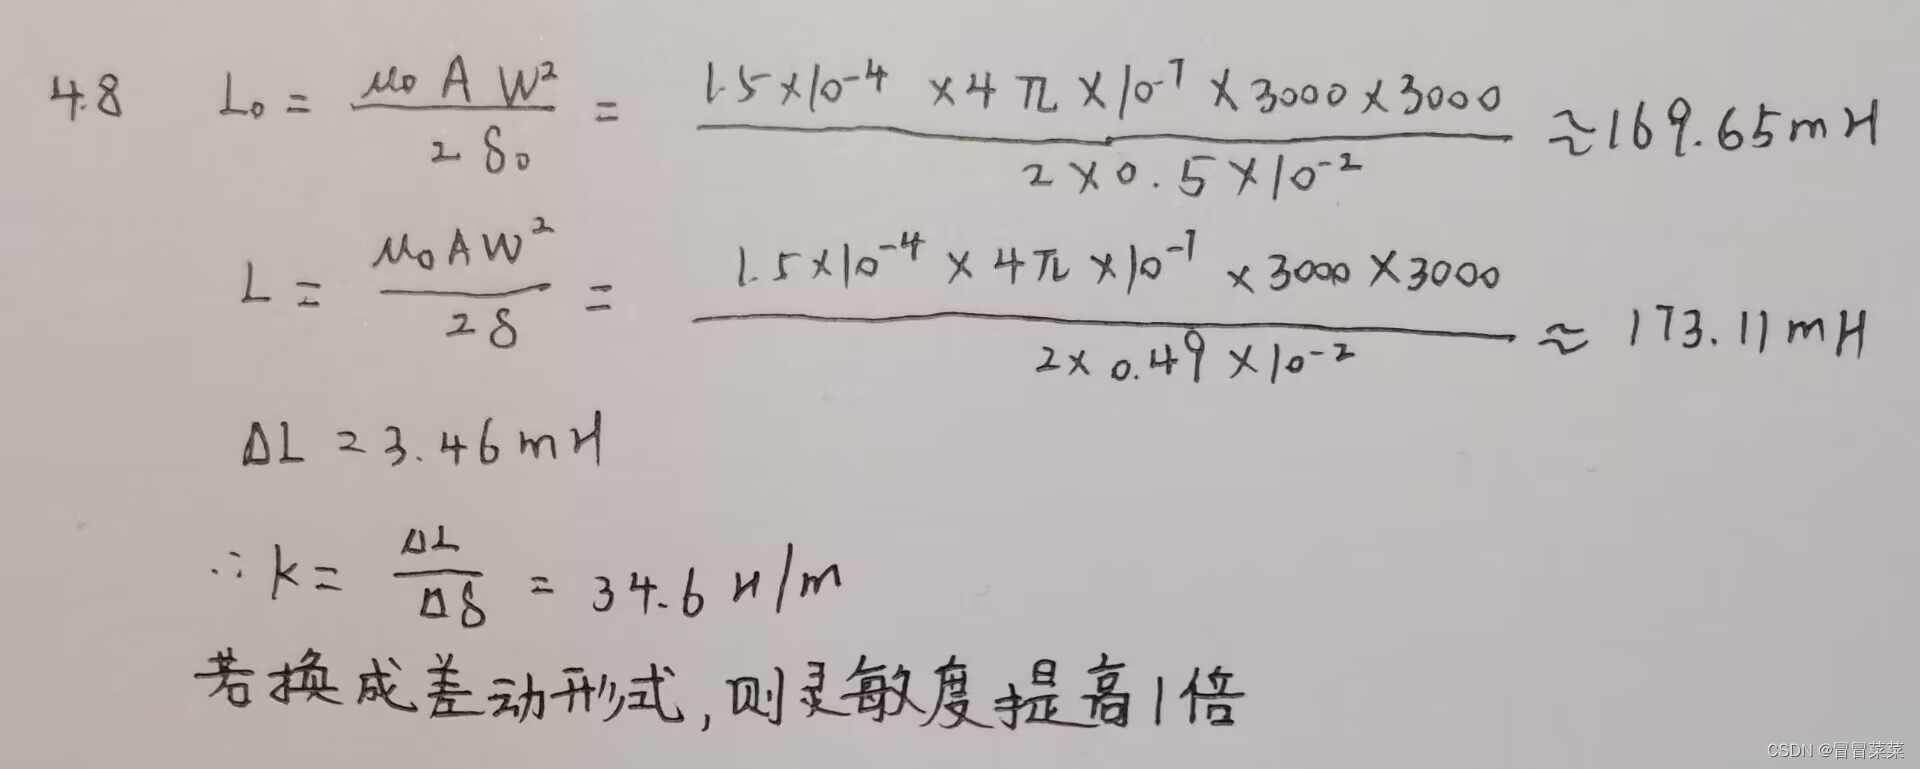 4.8 L₀ = μ₀AW² / 2δ₀ = 1.5×10⁻⁴ ×4π×10⁻⁷×3000×3000 / 2×0.5×10⁻² ≈169.65mH
L = μ₀AW² / 2δ = 1.5×10⁻⁴×4π×10⁻⁷×3000×3000 / 2×0.49×10⁻² ≈ 173.11mH
ΔL = 3.46mH
∴ k = ΔL / Δδ = 34.6 H/m
若换成差动形式,则灵敏度提高1倍
CSDN @冒冒菜菜